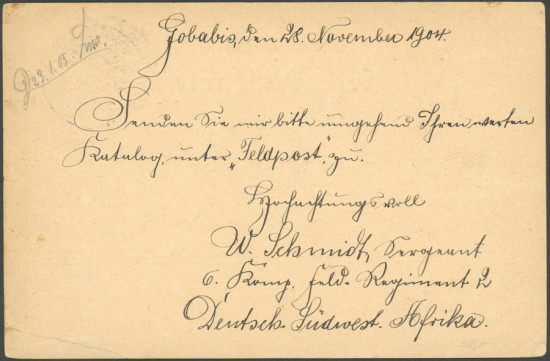 Gobabis, den 28. November 1904.
23.1.05.
Senden Sie mir bitte umgehend Ihren werten
Katalog, unter „Feldpost", zu.
Hochachtungsvoll
W. Schmidt, Sergeant
6. Komp. Feld-Regiment 2
Deutsch-Südwest-Afrika.